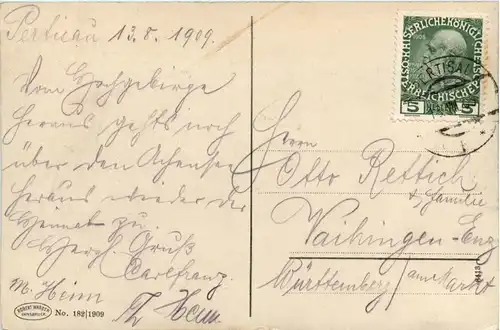 Pertisau 13.8.1909.
Vom Hochgebirge
heraus gehts noch
über den Achensee
heraus wieder der
Heimat zu.
Hergl. Gruß
Carlfranz
M. Heim
Heim
KAISERLICHE KÖNIGLICHE
ÖSTERREICHISCHE
1908
5 5
PERTISAU
Herrn
Otto Rettich
& Familie
Vaihingen-Enz
Württemberg am Markt
ROBERT WARGER
INNSBRUCK
No. 182/1909